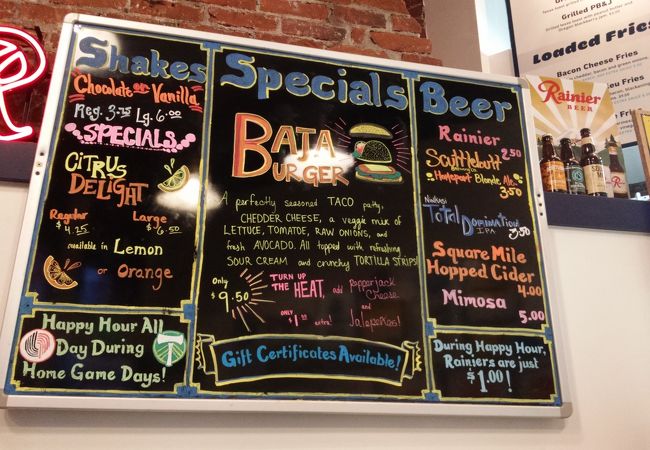 R
Shakes
Chocolate or Vanilla
Reg. 3.75 Lg. 6.00
SPECIALS
CITRUS
DELIGHT
Regular
$4.25
Large
$6.50
available in Lemon
or Orange
Happy Hour All
Day During
Home Game Days!
Specials
BAJA
BURGER
A perfectly seasoned TACO patty,
CHEDDER CHEESE, a veggie mix of
LETTUCE, TOMATOE, RAW ONIONS, and
fresh AVOCADO. All topped with refreshing
SOUR CREAM and crunchy TORTILLA STRIPS!
Only
$9.50
TURN UP
THE HEAT, add Pepperjack
Cheese
and
Jalepeños!
ONLY
$1.00 extra!
Gift Certificates Available!
Beer
Rainier
2.50
Scuttlebutt
Brewing Co.
Homeport Blonde Ale
3.50
Ninkasi
Total Domination
IPA 3.50
Square Mile
Hopped Cider
4.00
Mimosa
5.00
During Happy Hour,
Rainiers are just
$1.00!
Grilled PB&J
Loaded Fries
Bacon Cheese Fries
Rainier
BEER